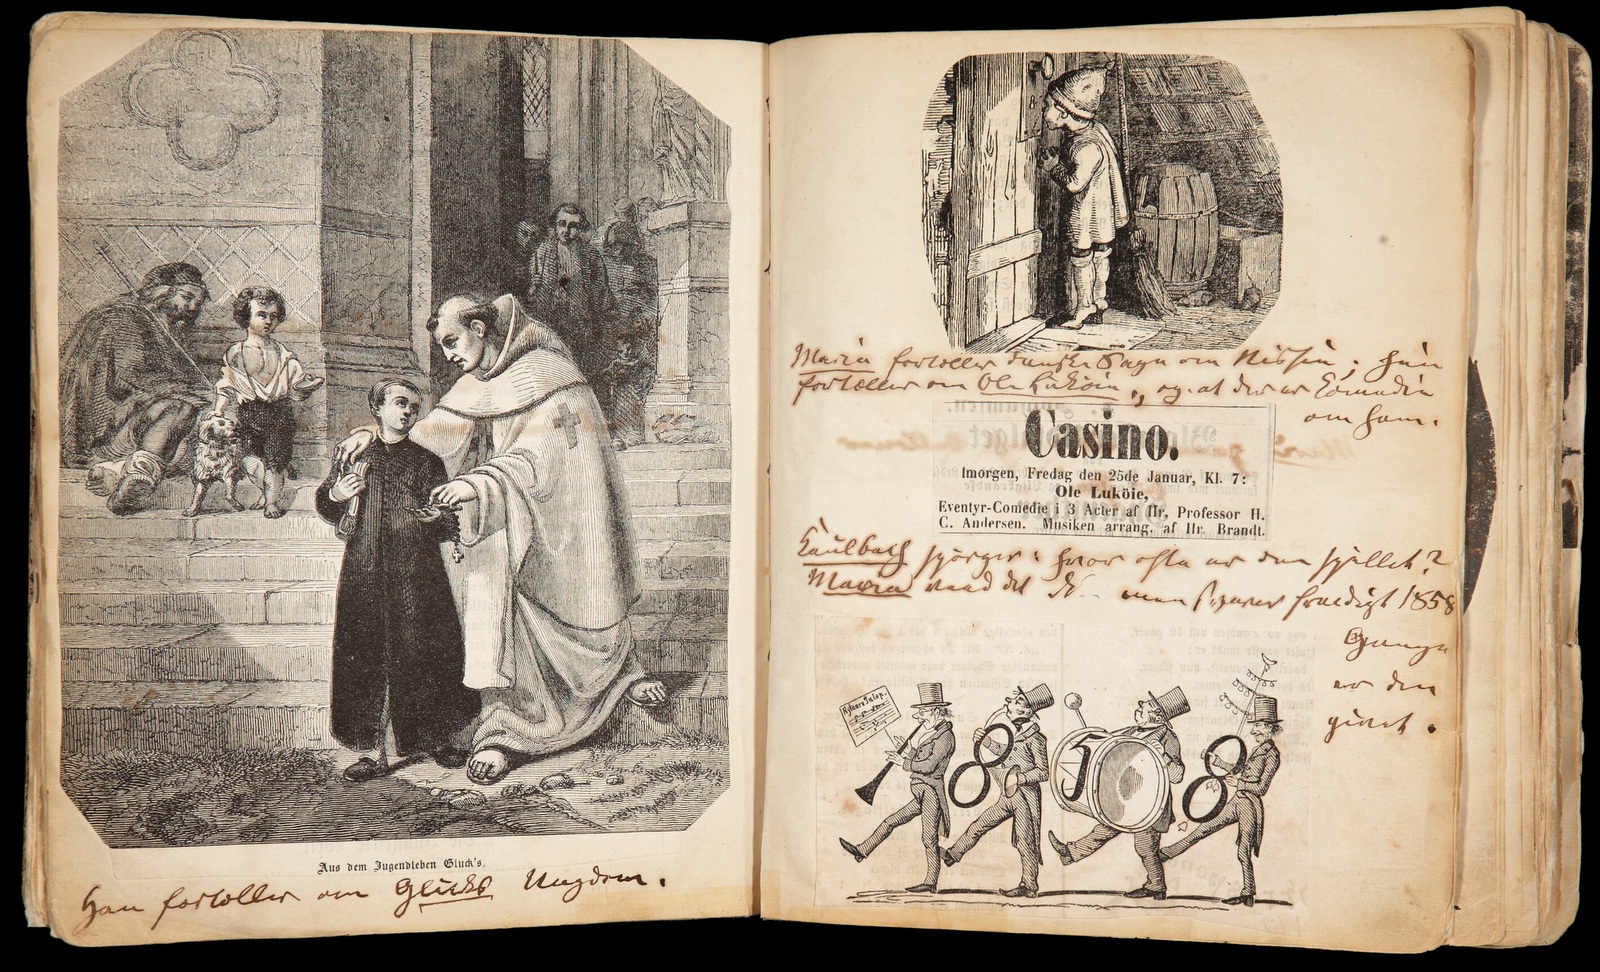 Aus dem Jugendleben Gluck's.
Han fortæller om Glucks Ungdom.
Maria fortæller Danske Sagn om Nissen; hun
fortæller om Ole Luköie, og at der er Comedie
om ham.
Casino.
Imorgen, Fredag den 25de Januar, Kl. 7:
Ole Luköie,
Eventyr-Comedie i 3 Acter af Hr, Professor H.
C. Andersen. Musiken arrang. af Hr. Brandt.
Kaulbach spørger: hvor ofte er den spillet?
Maria veed det man svarer 1858
Gange
er den
givet.
1858